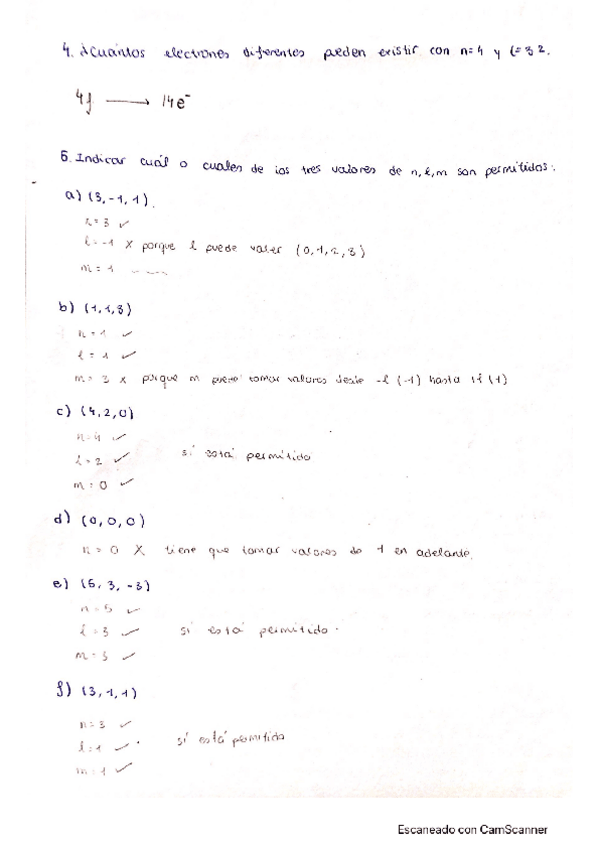 4. ¿Cuántos electrones diferentes pueden existir con n=4 y l=3?
4f ⟶ 14e⁻
5. Indicar cuál o cuales de los tres valores de n, l, m son permitidos:
a) (3,-1,1).
n=3 ✓
l=-1 X porque l puede valer (0,1,2,3)
m=1
b) (1,1,3)
n=1 ✓
l=1 ✓
m=3 x porque m puede tomar valores desde -l (-1) hasta (1)
c) (4,2,0)
n=4 ✓
l=2 ✓ sí está permitido
m=0 ✓
d) (0,0,0)
n=0 X tiene que tomar valores de 1 en adelante.
e) (5,3,-3)
n=5 ✓
l=3 ✓ sí está permitido.
m=3 ✓
f) (3,1,1)
n=3 ✓
l=1 ✓ sí está permitido
m=1 ✓
Escaneado con CamScanner